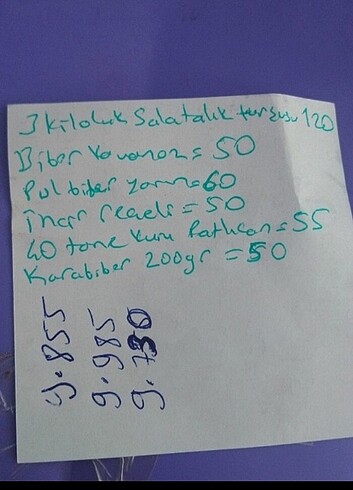 3 kiloluk Salatalık turşusu 120
Biber kavanoz = 50
Pul biber yarım = 60
incir reçeli = 50
40 tane kuru Patlıcan = 55
Karabiber 200gr = 50
9.855
9.985
9.730